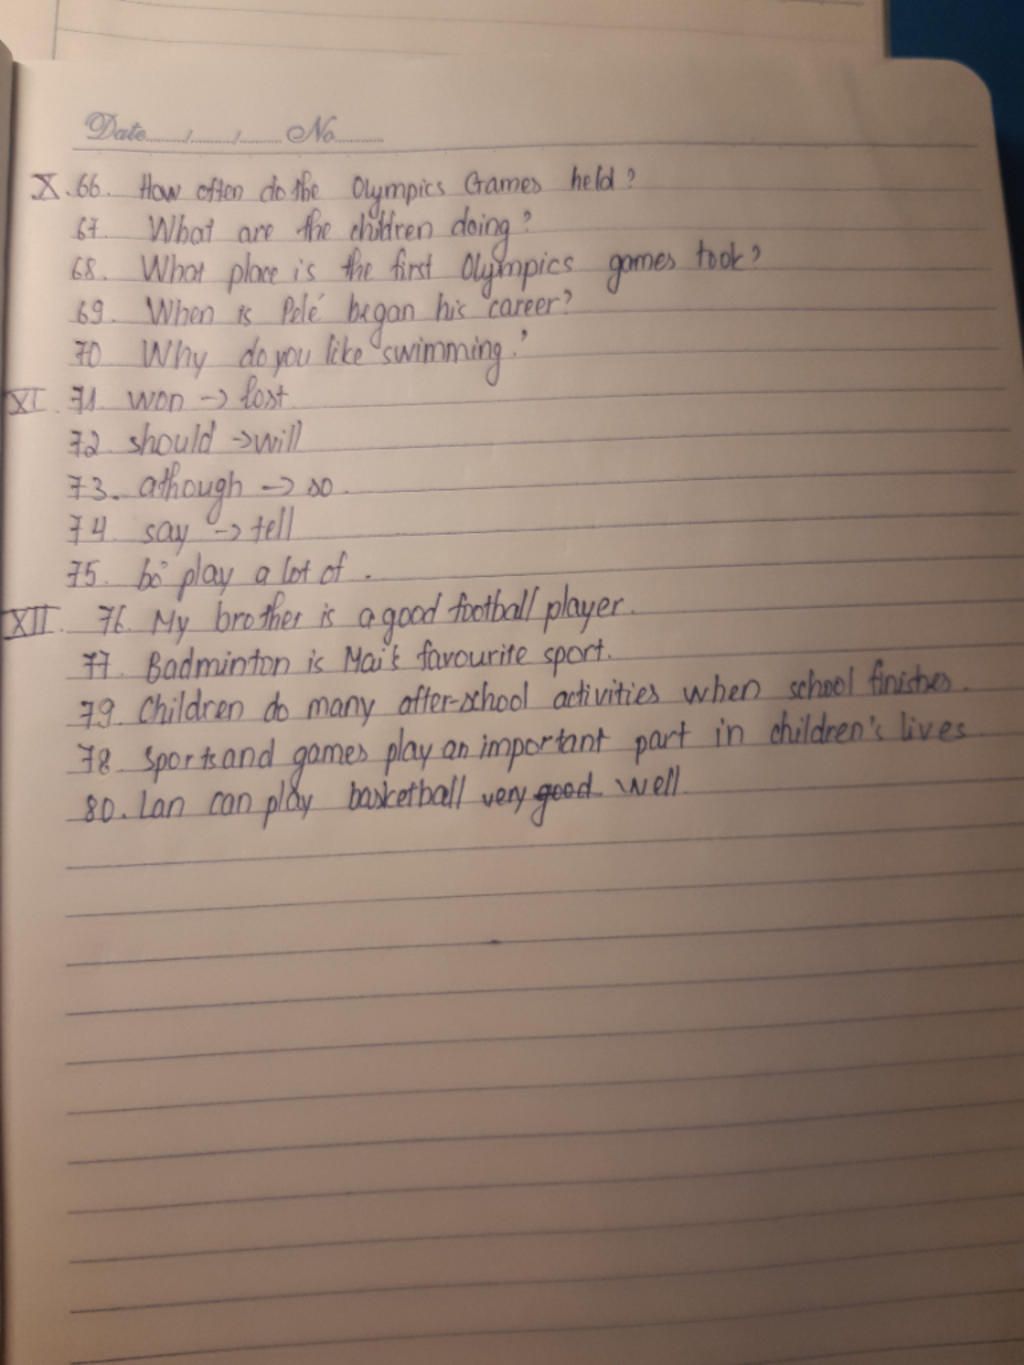 Date......../......../........ No.........
X. 66. How often do the Olympics Games held?
67. What are the children doing?
68. What place is the first Olympics games took?
69. When is Pelé began his career?
70 Why do you like swimming?
XI. 71. won -> lost
72 should -> will
73. athough -> so.
74. say -> tell
75. bỏ play a lot of.
XII. 76. My brother is a good football player.
77. Badminton is Mai's favourite sport.
79. Children do many after-school activities when school finishes.
78. Sports and games play an important part in children's lives
80. Lan can play basketball very good well.